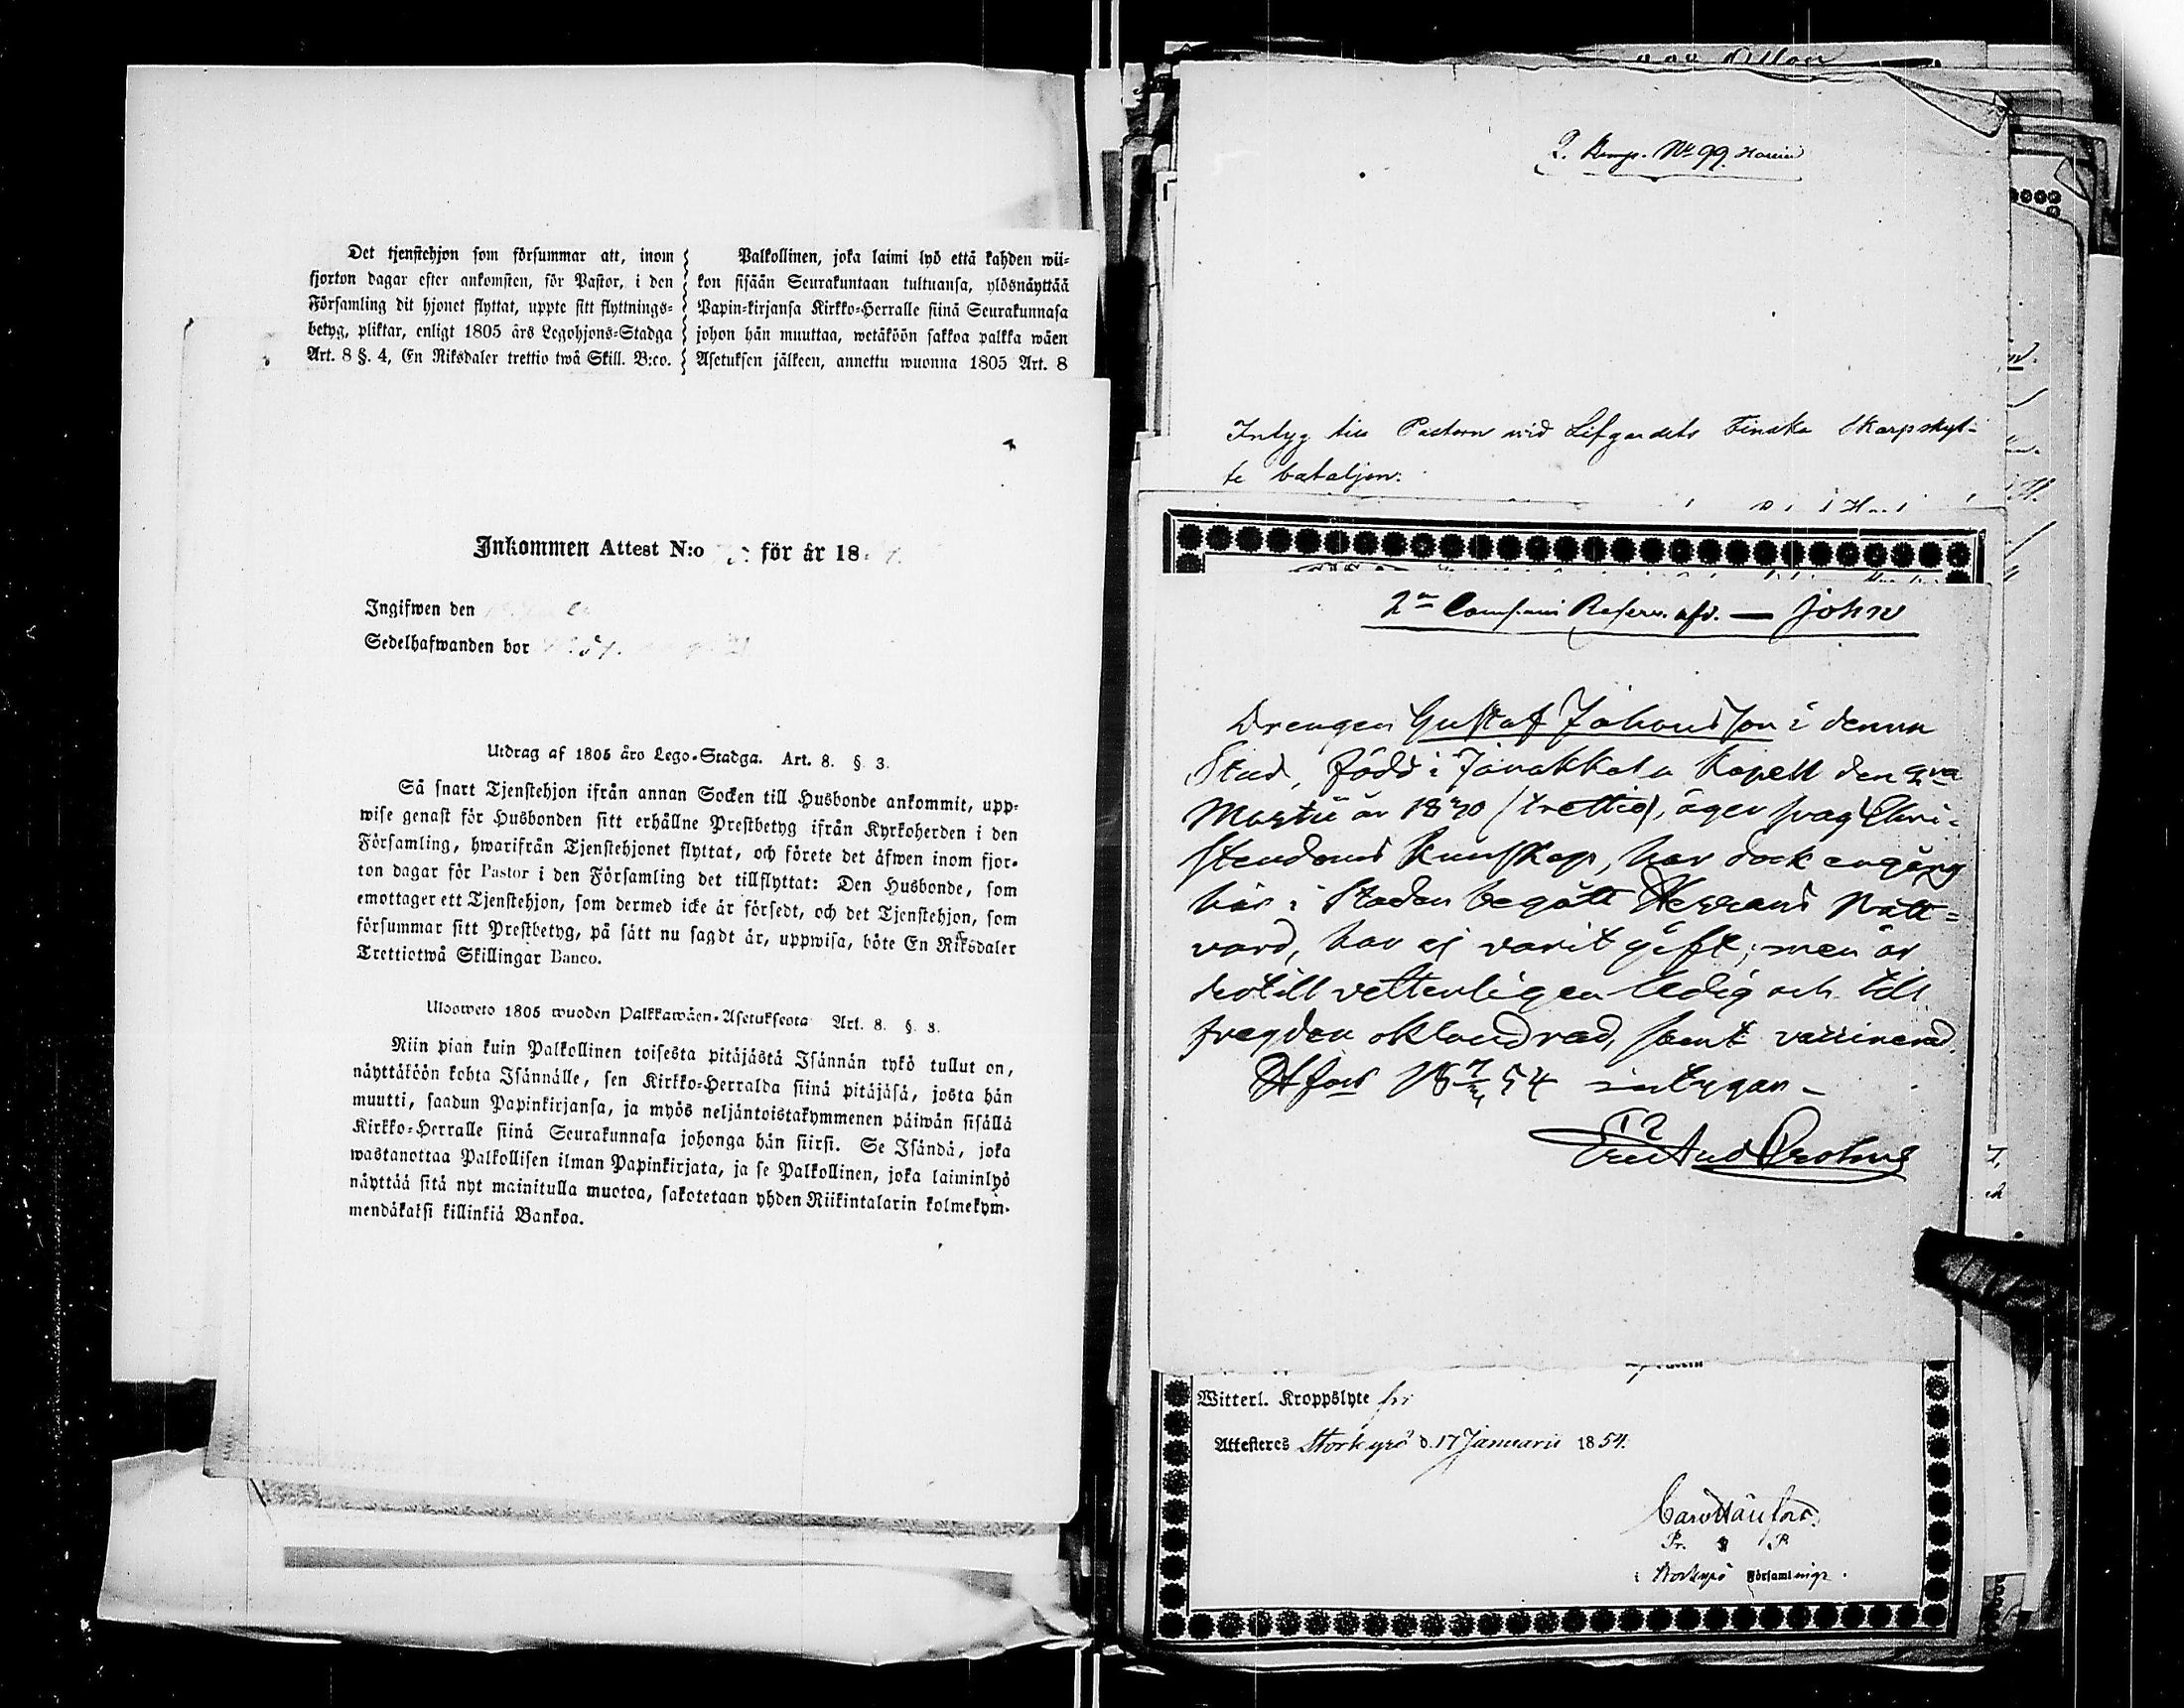 Det tjenstehjon som försummar att, inom
fjorton dagar efter ankomsten, för Pastor, i den
Församling dit hjonet flyttat, uppte sitt flyttnings-
betyg, pliktar, enligt 1805 års Legohjons-Stadga
Art. 8 §. 4, En Riksdaler trettio twå Skill. B:co.
Palkollinen, joka laimi lyö että kahden wii-
kon sisään Seurakuntaan tultuansa, ylösnäyttää
Papin-kirjansa Kirkko-Herralle siinä Seurakunnasa
johon hän muuttaa, wetäköön sakkoa palkka wäen
Asetuksen jälkeen, annettu wuonna 1805 Art. 8
Inkommen Attest N:o för år 18
Ingifwen den
Sedelhafwanden bor
Utdrag af 1805 åro Lego-Stadga. Art. 8. § 3.
Så snart Tjenstehjon ifrån annan Socken till Husbonde ankommit, upp-
wise genast för Husbonden sitt erhållne Prestbetyg ifrån Kyrkoherden i den
Församling, hwarifrån Tjenstehjonet flyttat, och förete det äfwen inom fjor-
ton dagar för Pastor i den Församling det tillflyttat: Den Husbonde, som
emottager ett Tjenstehjon, som dermed icke är försedt, och det Tjenstehjon, som
försummar sitt Prestbetyg, på sätt nu sagdt är, uppwisa, böte En Riksdaler
Trettiotwå Skillingar Banco.
Ulosweto 1805 wuoden Palkkawäen-Asetuksesta Art. 8. § 3.
Niin pian kuin Palkollinen toisesta pitäjästä Isännän tykö tullut on,
näyttäköön kohta Isännälle, sen Kirkko-Herralda siinä pitäjäsä, josta hän
muutti, saadun Papinkirjansa, ja myös neljäntoistakymmenen päiwän sisällä
Kirkko-Herralle siinä Seurakunnasa johonga hän siirsi. Se Isändä, joka
wastanottaa Palkollisen ilman Papinkirjata, ja se Palkollinen, joka laiminlyö
näyttää sitä nyt mainitulla muotoa, sakotetaan yhden Riikintalarin kolmekym-
mendäkaksi killinkiä Bankoa.
2. Komp. No 99
Intyg till Pastorn wid Lifgardets Finska Skarpskyt-
te bataljon.
2n Compani Reserv. afd. — John
Drengen Gustaf Johansson i denna
Stad, född i Janakkala kapell den
Martii år 1830 (trettio), äger svag Chri-
stendoms kunskap, har dock engång
här i Staden begått Herrans Natt-
vard, har ej varit gift; men är
dertill vetterligen ledig och till
fregden oklandrad, samt vaccinerad.
Hfors 18 54 intygar
Witterl. Kroppslyte fri
Attesteres Storkyrö d. 17 Januarii 1854.
i Storkyrö Församlings.